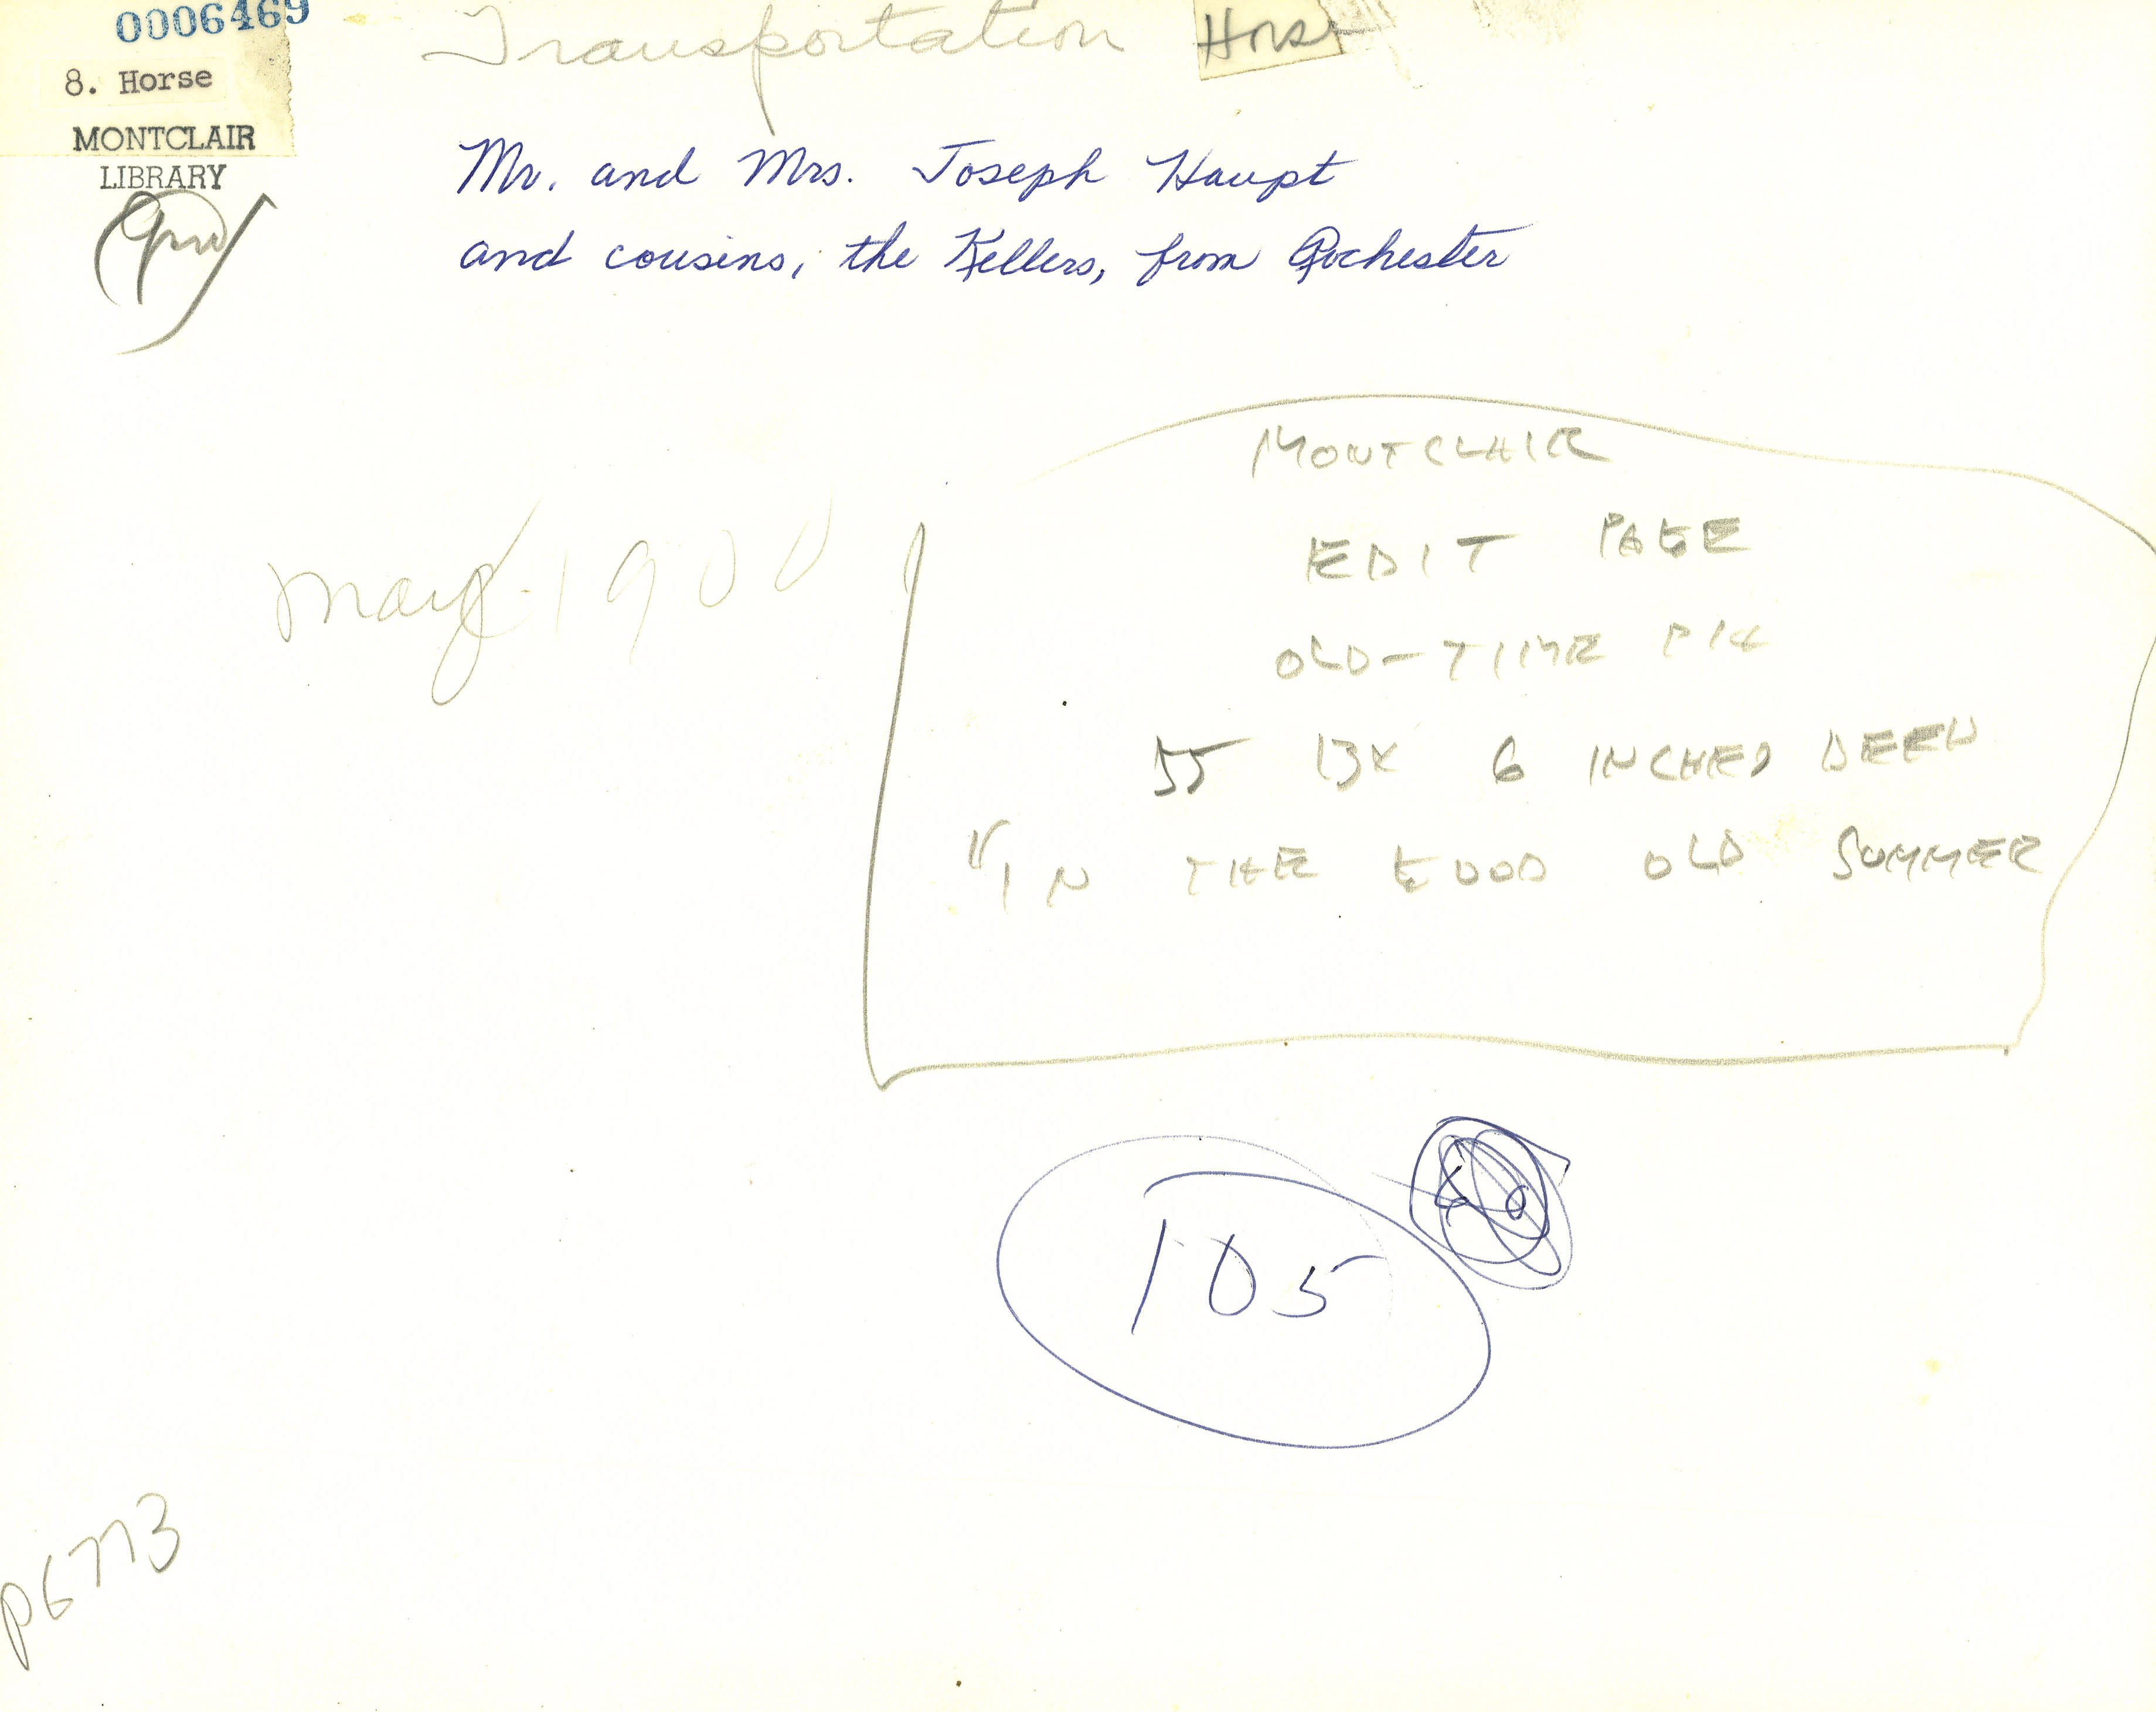 0006469
Transportation Horse
8. Horse
MONTCLAIR
LIBRARY
Mr. and Mrs. Joseph Haupt
and cousins, the Kellers, from Rochester
May 1900
MONTCLAIR
EDIT PAGE
OLD-TIME PIX
6 INCHES DEEP
"IN THE GOOD OLD SUMMER
105
P6773